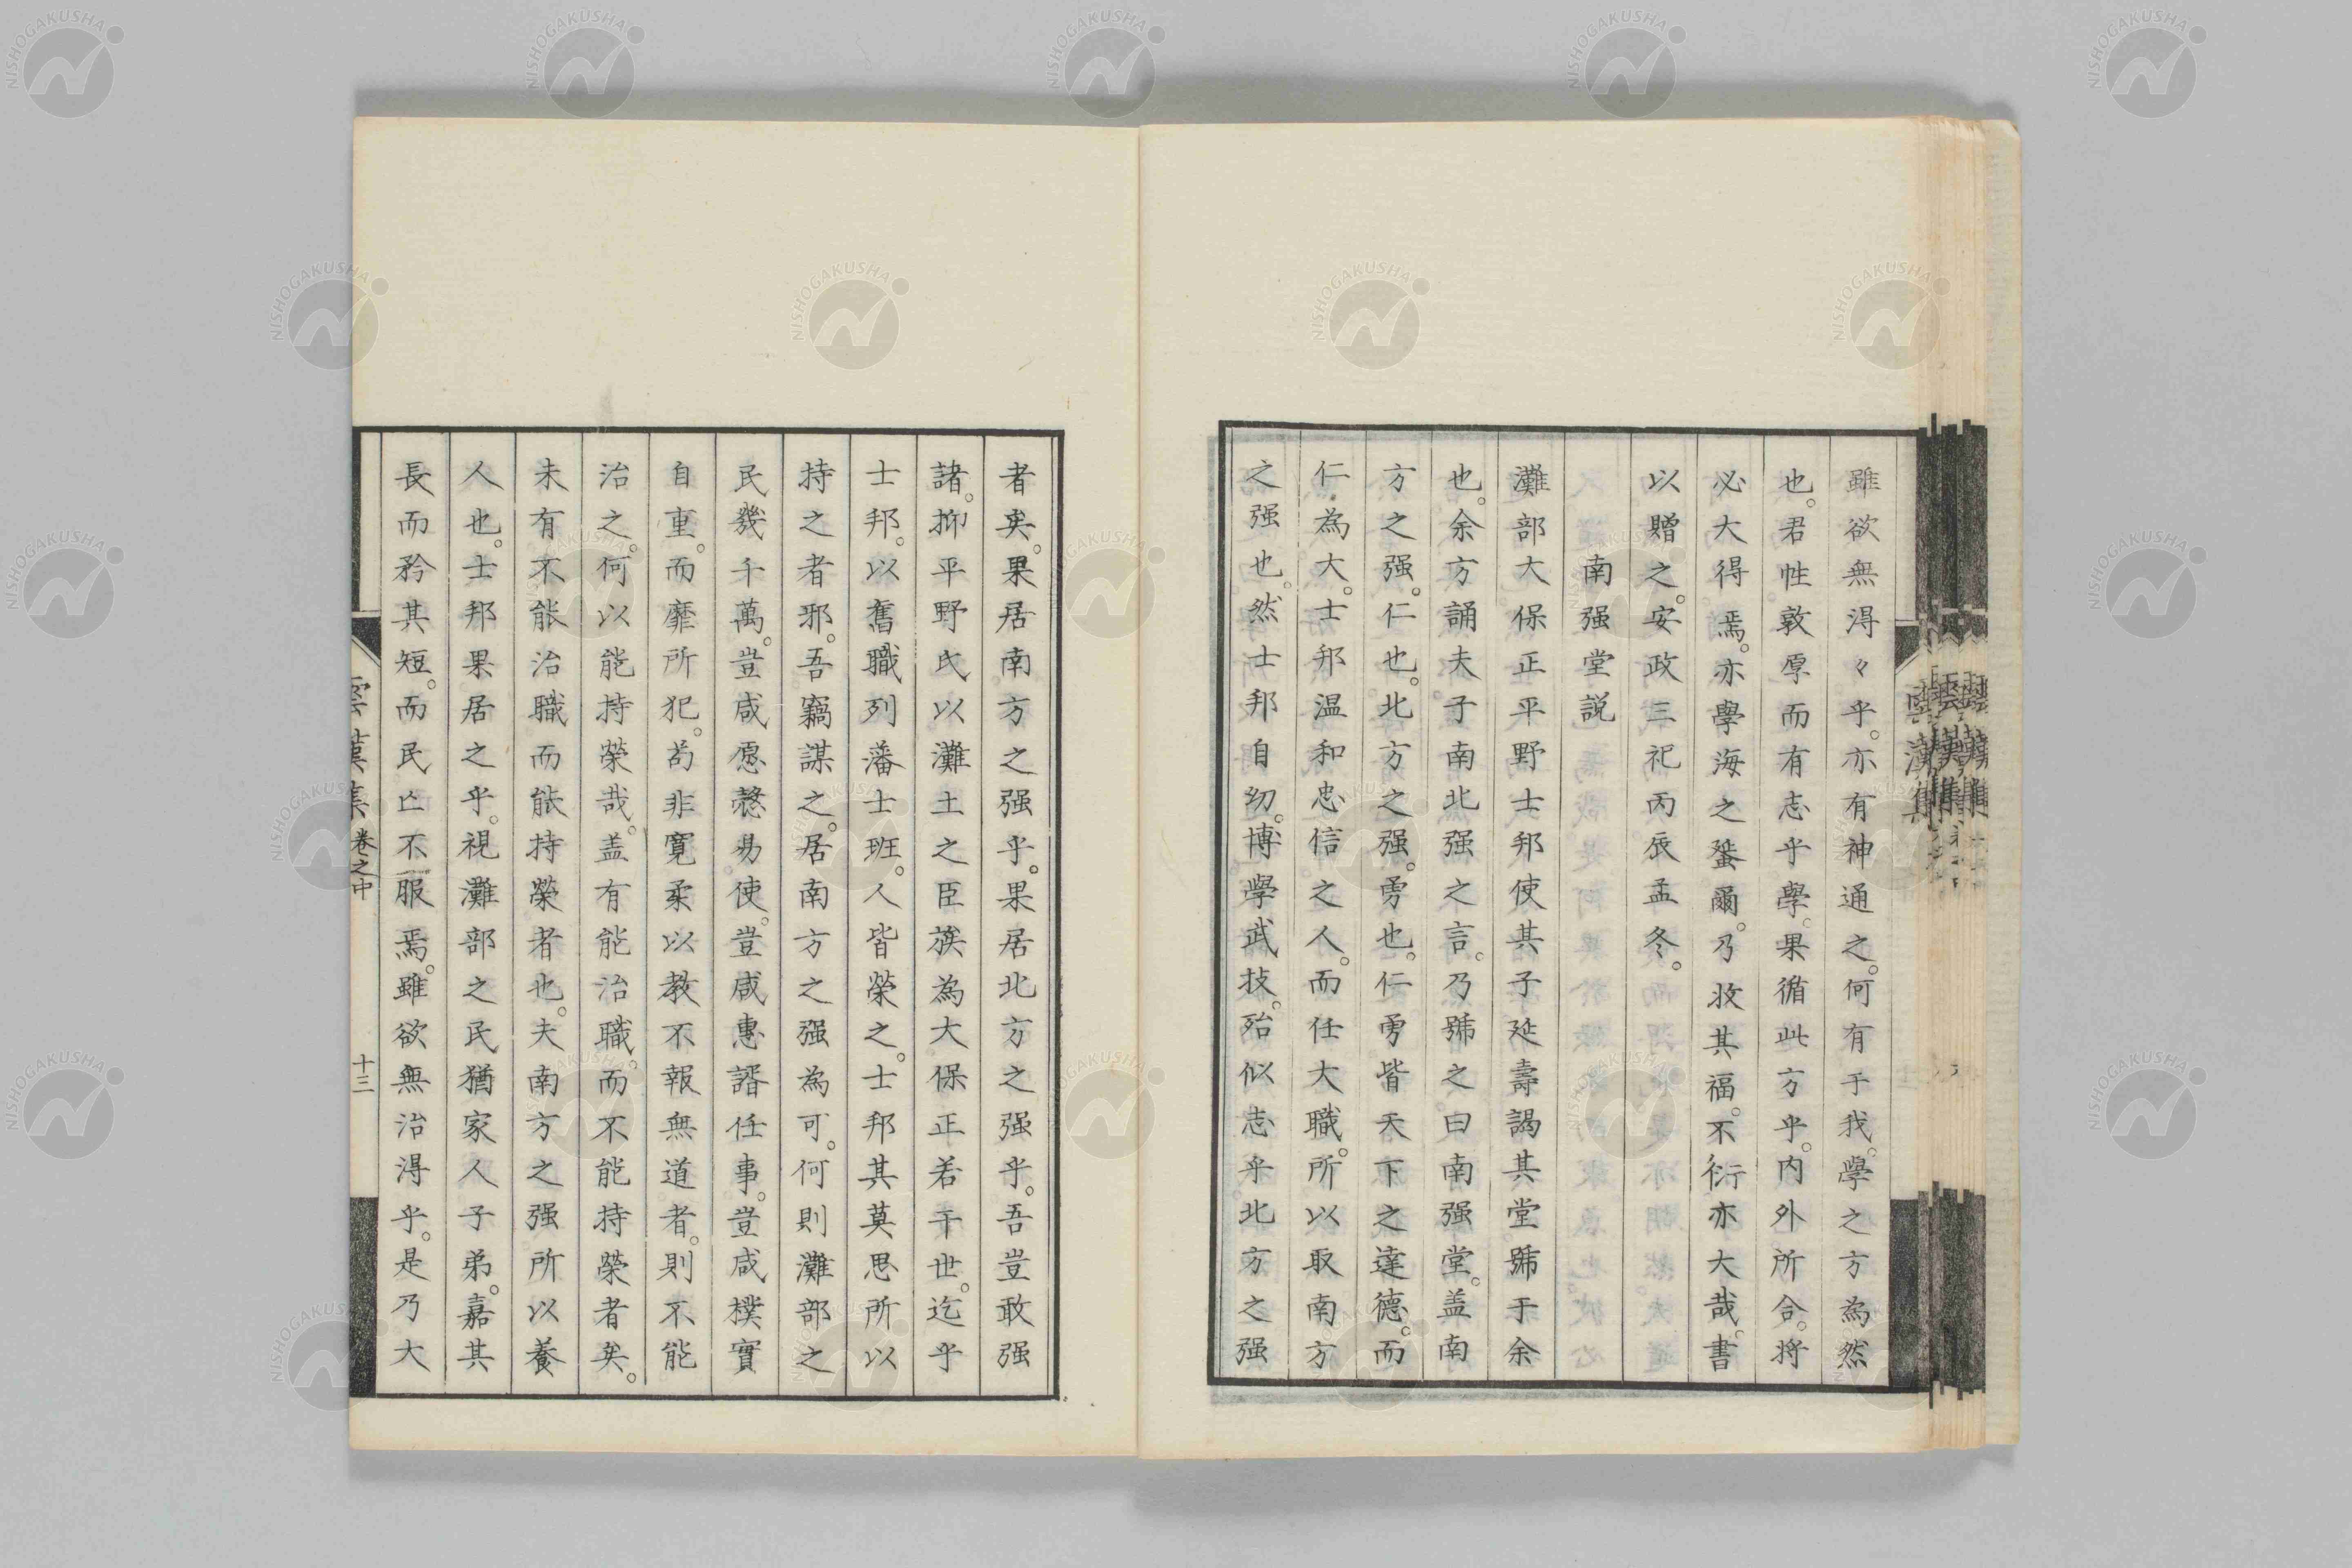 雖欲無淂々乎。亦有神通之。何有于我。學之方為然
也。君性敦厚而有志乎學。果循此方乎。内外所合。将
必大得焉。亦學海之蜑爾。乃收其福。不衍亦大哉。書
以贈之。安政三祀丙辰孟冬。
南强堂説
灘部大保正平野士邦使其子延壽謁其堂號于余
也。余方誦夫子南北强之言。乃號之曰南强堂。盖南
方之强。仁也。北方之强。勇也。仁勇皆天下之達德。而
仁為大。士邦温和忠信之人。而任大職。所以取南方
之强也。然士邦自幼。博學武技。殆似志乎北方之强
者矣。果居南方之强乎。果居北方之强乎。吾豈敢强
諸。抑平野氏以灘土之臣族為大保正若干世。迄乎
士邦。以舊職列藩士班。人皆榮之。士邦其莫思所以
持之者邪。吾竊謀之。居南方之强為可。何則灘部之
民幾千萬。豈咸愿愨易使。豈咸惠諝任事。豈咸樸實
自重。而靡所犯。苟非寬柔以教不報無道者。則不能
治之。何以能持榮哉。盖有能治職。而不能持榮者矣。
未有不能治職而能持榮者也。夫南方之强所以養
人也。士邦果居之乎。視灘部之民猶家人子弟。嘉其
長而矜其短。而民亡不服焉。雖欲無治淂乎。是乃大
雲漢集 卷之中 十三
雲漢集